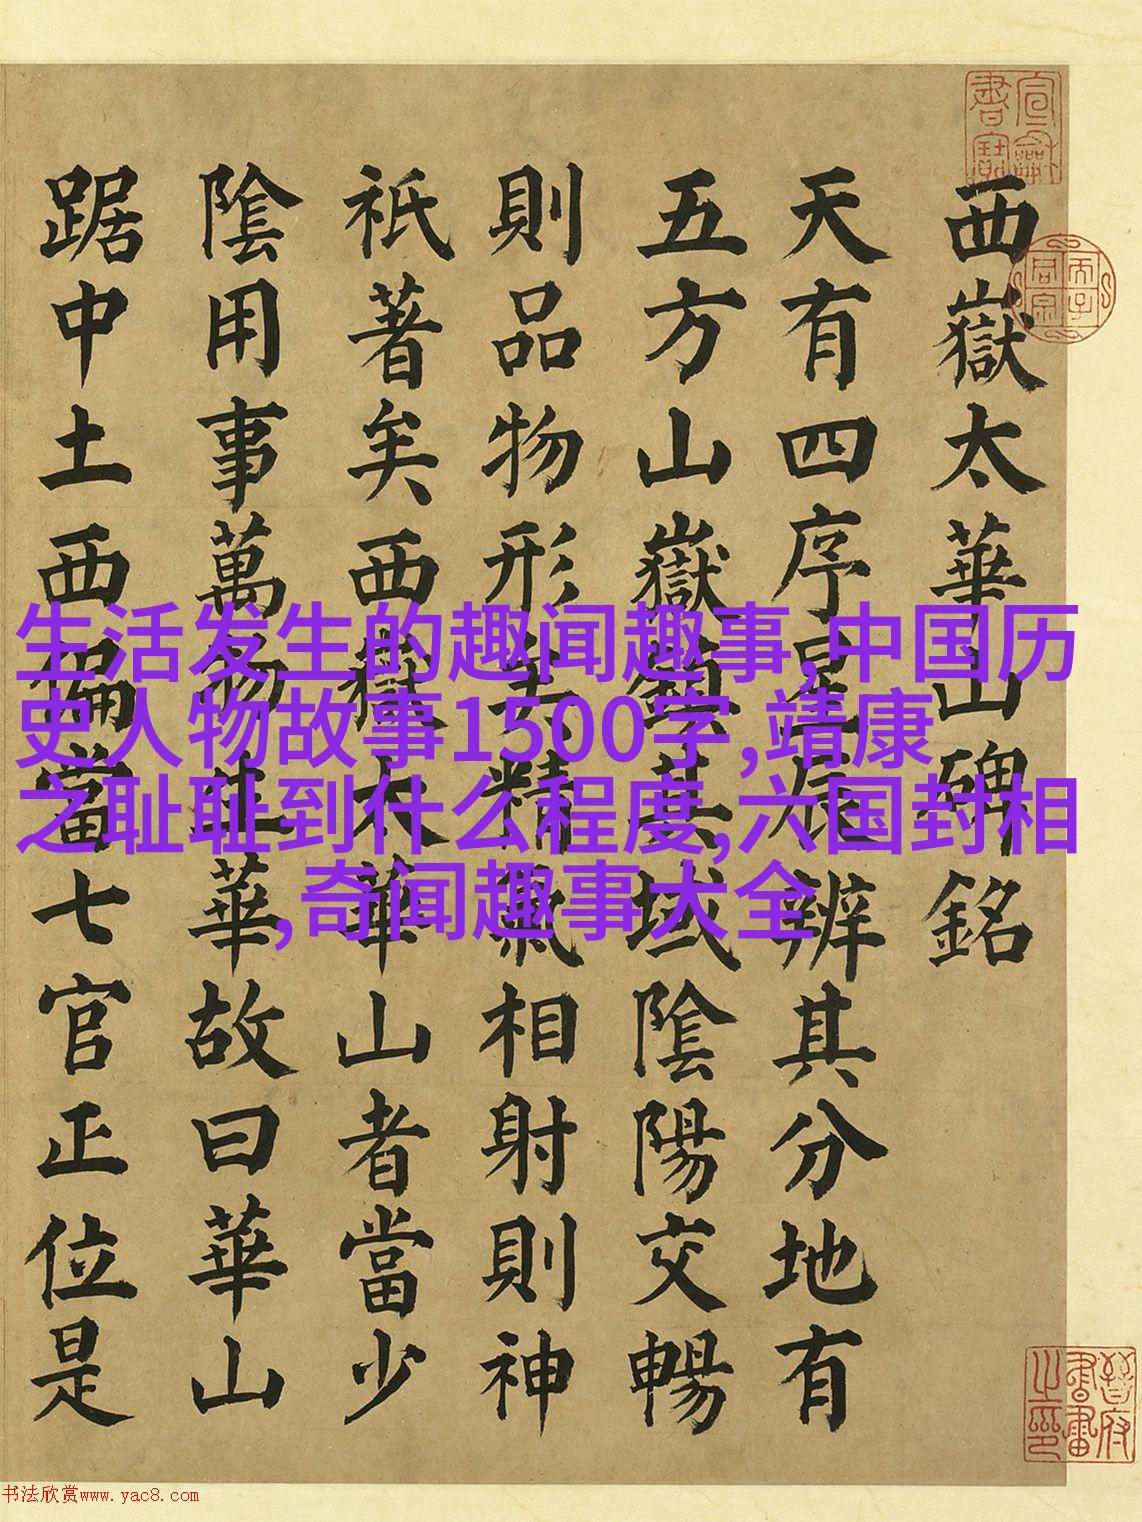 西嶽太華山碑銘
天有四序星辰辨其分地有
五方山嶽鎮其域陰陽交暢
則品物形精氣相射則神
祇著矣西嶽太華山者當少
陰用事萬物生華故曰華山
踞中土西偏當七官正位是
生活发生的趣闻趣事,中国历
史人物故事1500字,靖康
之耻耻到什么程度,六国封相
,奇闻趣事大全
晉府書畫之印
书法欣赏www.yac8.com